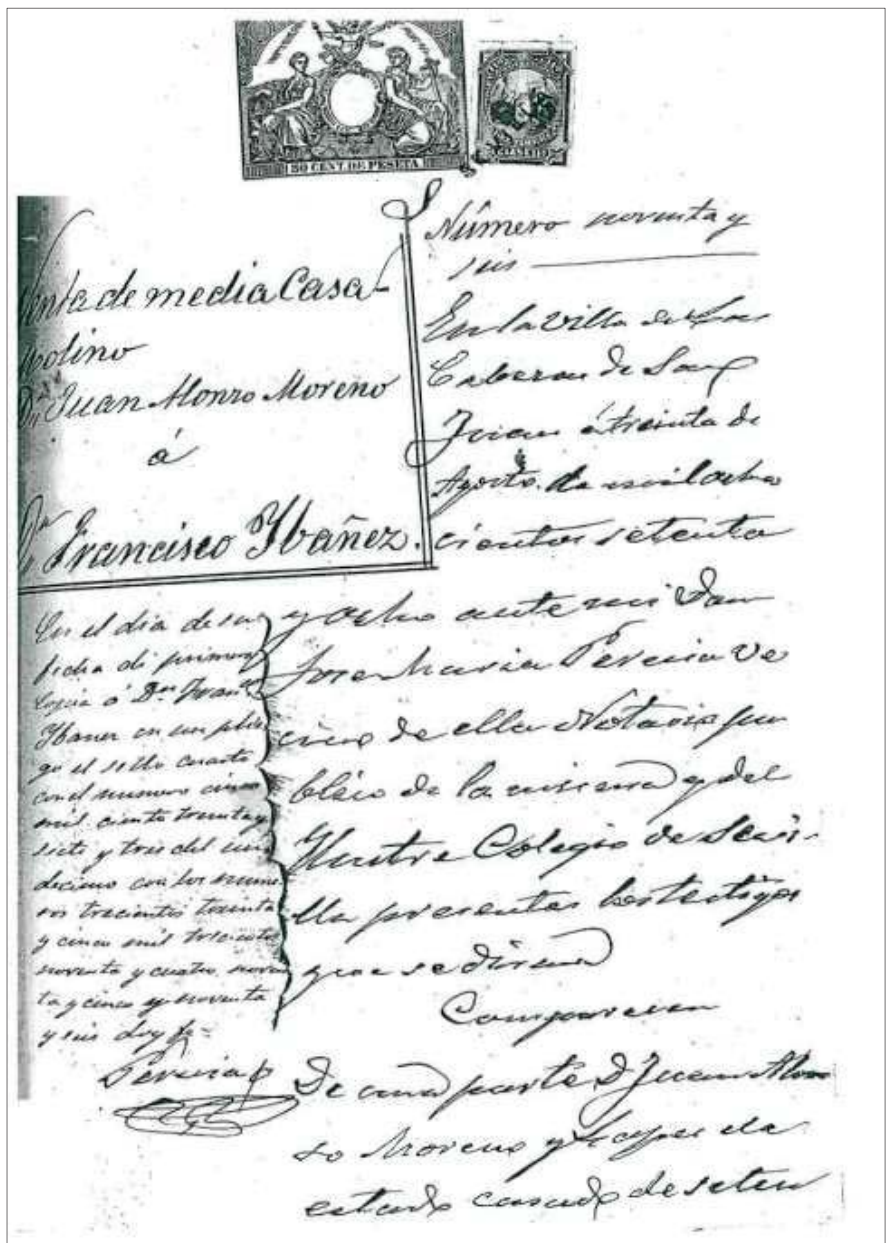 50 CENT. DE PESETA
Venta de media Casa-
Molino
Dⁿ Juan Alonzo Moreno
á
Dⁿ Francisco Ybañez.
En el dia de su
fecha di primera
Copia á Dⁿ Franᶜᵒ
Ybanez en un plie
go el sello cuarto
con el numero cinco
mil ciento treinta y
siete y tres del un
decimo con los nume
ros trecientos treinta
y cinco mil trecientos
noventa y cuatro, noven
ta y cinco y noventa
y seis doy fe=
Pereira
Número noventa y
seis
En la villa de Las
Cabezas de San
Juan á treinta de
Agosto de mil ocho
cientos setenta
y ocho ante mi Don
Jose Maria Pereira ve
cino de ella Notario pu
blico de la misma y del
Ilustre Colegio de Sevi-
lla presentes los testigos
que se diran
Comparecen
De una parte D. Juan Alon
so Moreno y de
estado casado de seten